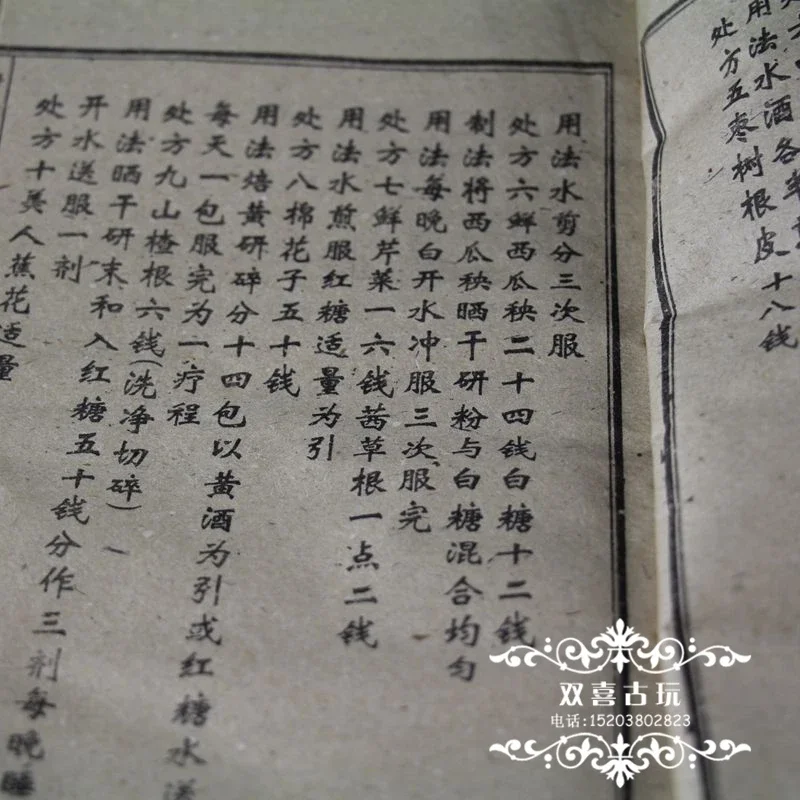 用法水酒各半
处方五枣树根皮十八钱
用法水剪分三次服
处方六鲜西瓜秧二十四钱白糖十二钱
制法将西瓜秧晒干研粉与白糖混合均匀
用法每晚白开水冲服三次服完
处方七鲜芹菜一六钱茜草根一点二钱
用法水煎服红糖适量为引
处方八棉花子五十钱
用法焙黄研碎分十四包以黄酒为引或红糖水送
每天一包服完为一疗程
处方九山楂根六钱(洗净切碎)
用法晒干研末和入红糖五十钱分作三剂每晚睡
开水送服一剂
处方十美人蕉花适量
双喜古玩
电话:15203802823